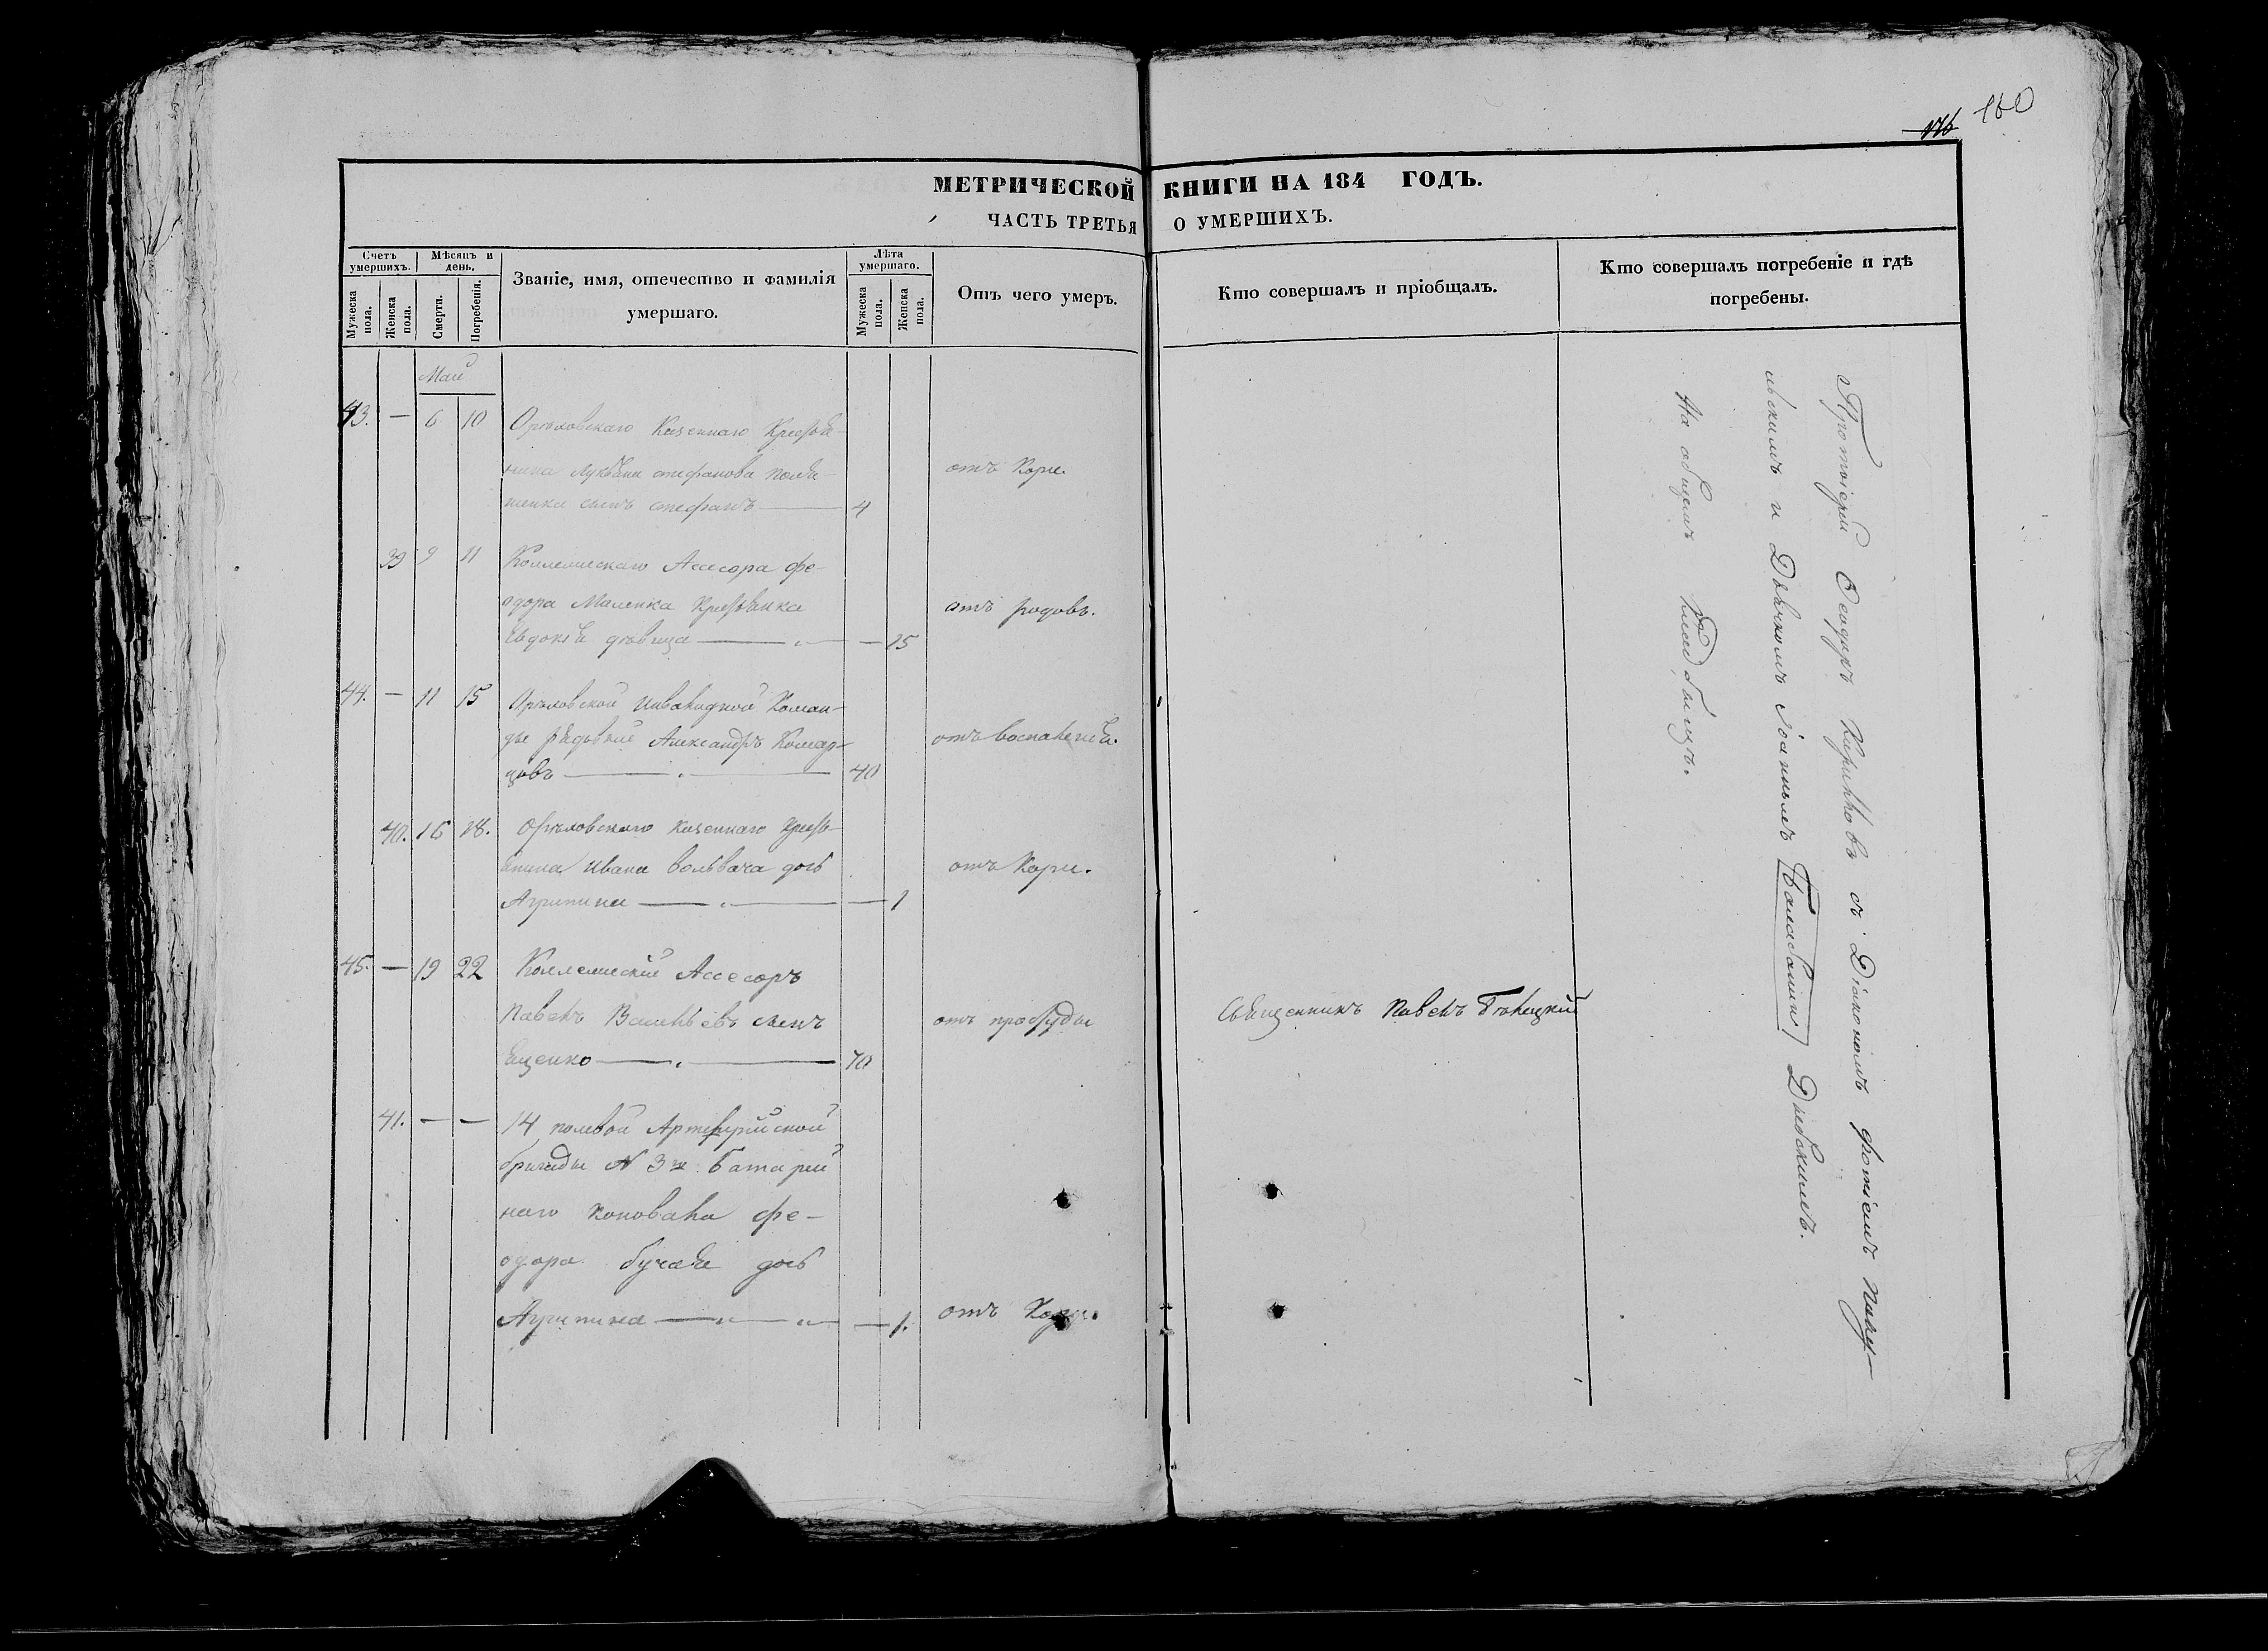 176 160
МЕТРИЧЕСКОЙ КНИГИ НА 184 ГОДЪ.
ЧАСТЬ ТРЕТЬЯ О УМЕРШИХЪ.
Счетъ умершихъ.
Мужеска пола.
Женска пола.
Мѣсяцъ и день.
Смерти.
Погребенія.
Званіе, имя, отечество и фамилія
умершаго.
Лѣта умершаго.
Мужеска пола.
Женска пола.
Отъ чего умеръ.
Кто совершалъ и пріобщалъ.
Кто совершалъ погребеніе и гдѣ
погребены.
Май
43. — 6 10 Орѣховскаго Казеннаго Крестья-
нина стефанова отъ Кори.
сынъ стефанъ — 4
39 9 11 Коллежскаго Ассесора Фе-
одора Крестьянка отъ родовъ.
Евдокія дѣвица — — 25
44. — 11 15 Орѣховской инвалидной Коман-
ды рядовый Александръ отъ воспаленія.
цовъ — 40
40. 16 18. Орѣховскаго казеннаго Кресть-
янина Ивана вольвача дочь отъ Кори.
Агрипина — — 1
45. — 19 22 Коллежскій Ассесоръ
Павелъ Васильевъ сынъ отъ простуды Священникъ Павелъ
ященко — 70
41. — — 14 полевой Артилерійской
бригады N 3й Батарей
наго коновала Фе-
одора дочь
Агрипина — — 1. отъ Кори.
Протоіерей Ѳеодоръ Кирилловъ съ Діакономъ Фотіемъ
и Дьячкомъ Іоанномъ
На общемъ Кладбищѣ.